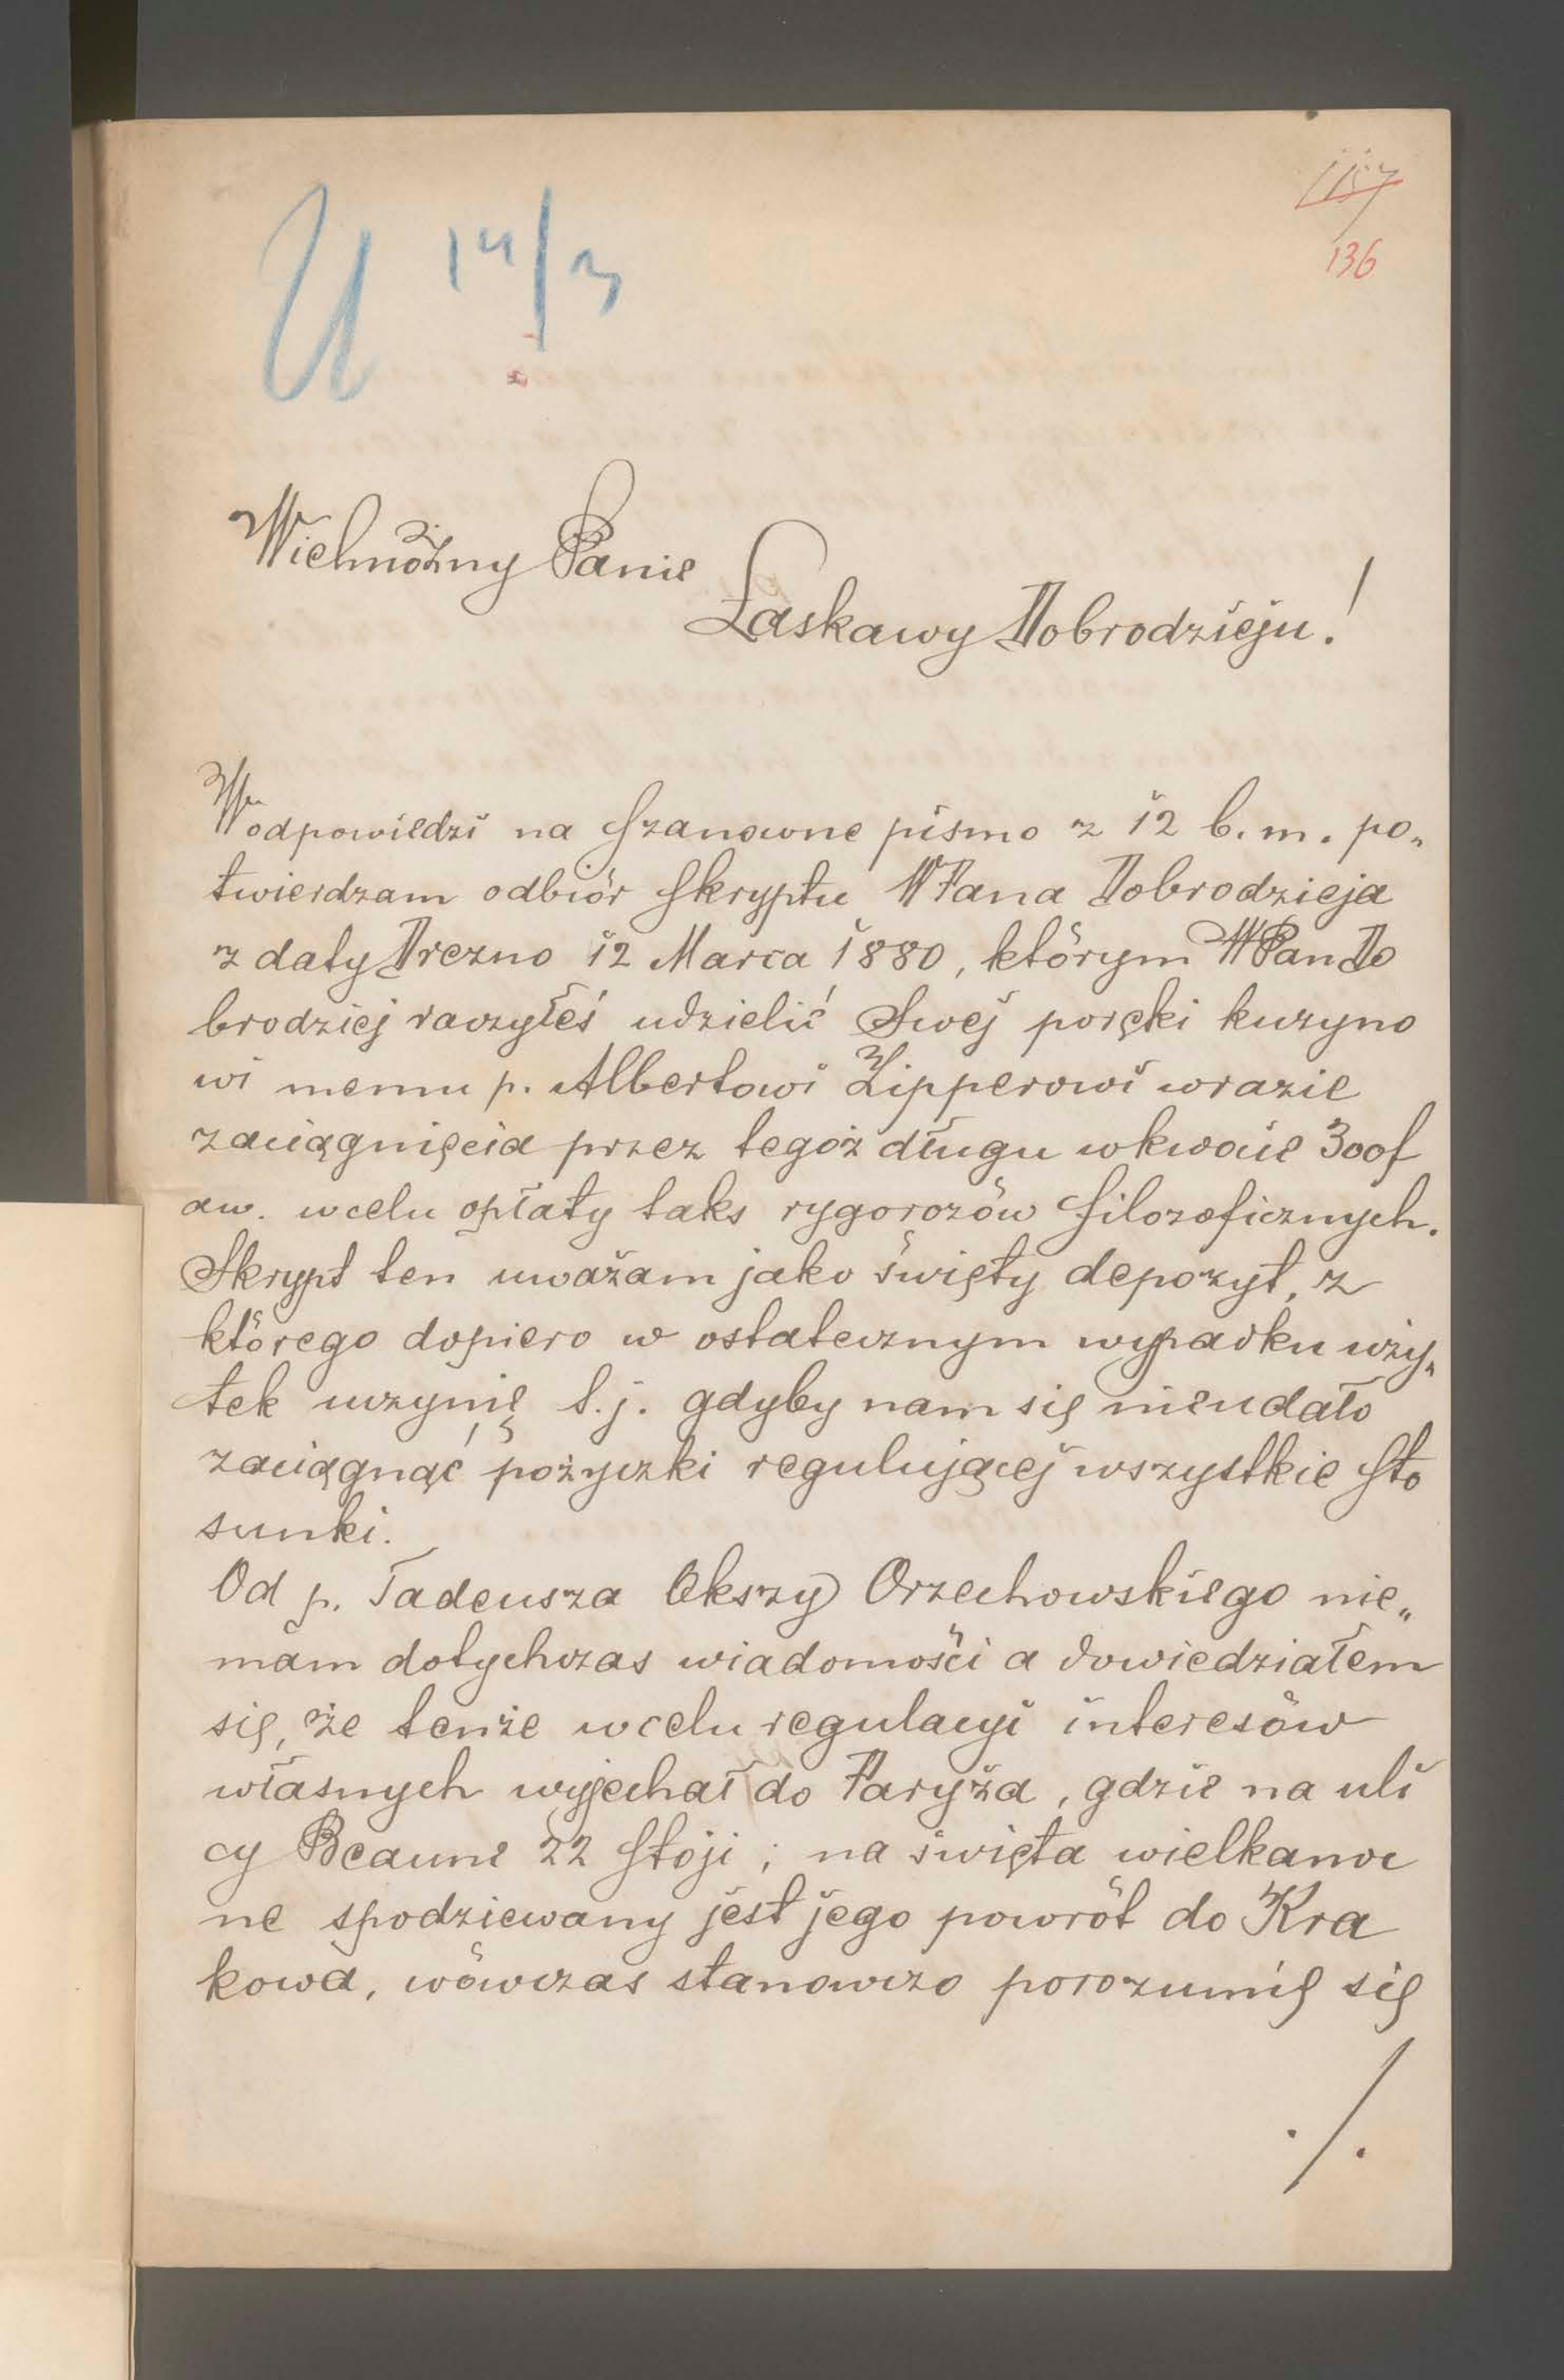 157
136
U 14/3
Wielmożny Panie
Łaskawy Dobrodzieju!
W odpowiedzi na Szanowne pismo z 12 b. m. po„
twierdzam odbiór Skryptu WPana Dobrodzieja
z daty Drezno 12 Marca 1880, którym WPan Do
brodziej raczyłeś udzielić Swej poręki kuzyno
wi memu p. Albertowi Zipperowi wrazie
zaciągnięcia przez tegoż długu wkwocie 300f
aw. wcelu opłaty taks rygorozów filozoficznych.
Skrypt ten uważam jako święty depozyt, z
którego dopiero w ostatecznym wypadku uży„
tek uczynię t.j. gdyby nam się nieudało
zaciągnąć pożyczki regulującej wszystkie Sto
sunki.
Od p. Tadeusza Okszy Orzechowskiego nie„
mam dotychczas wiadomości a dowiedziałem
się, że tenże wcelu regulacyi interesów
własnych wyjechał do Paryża, gdzie na uli
cy Beaune 22 Stoji; na święta wielkanoc
ne spodziewany jest jego powrót do Kra
kowa, wówczas stanowczo porozumię się
./.